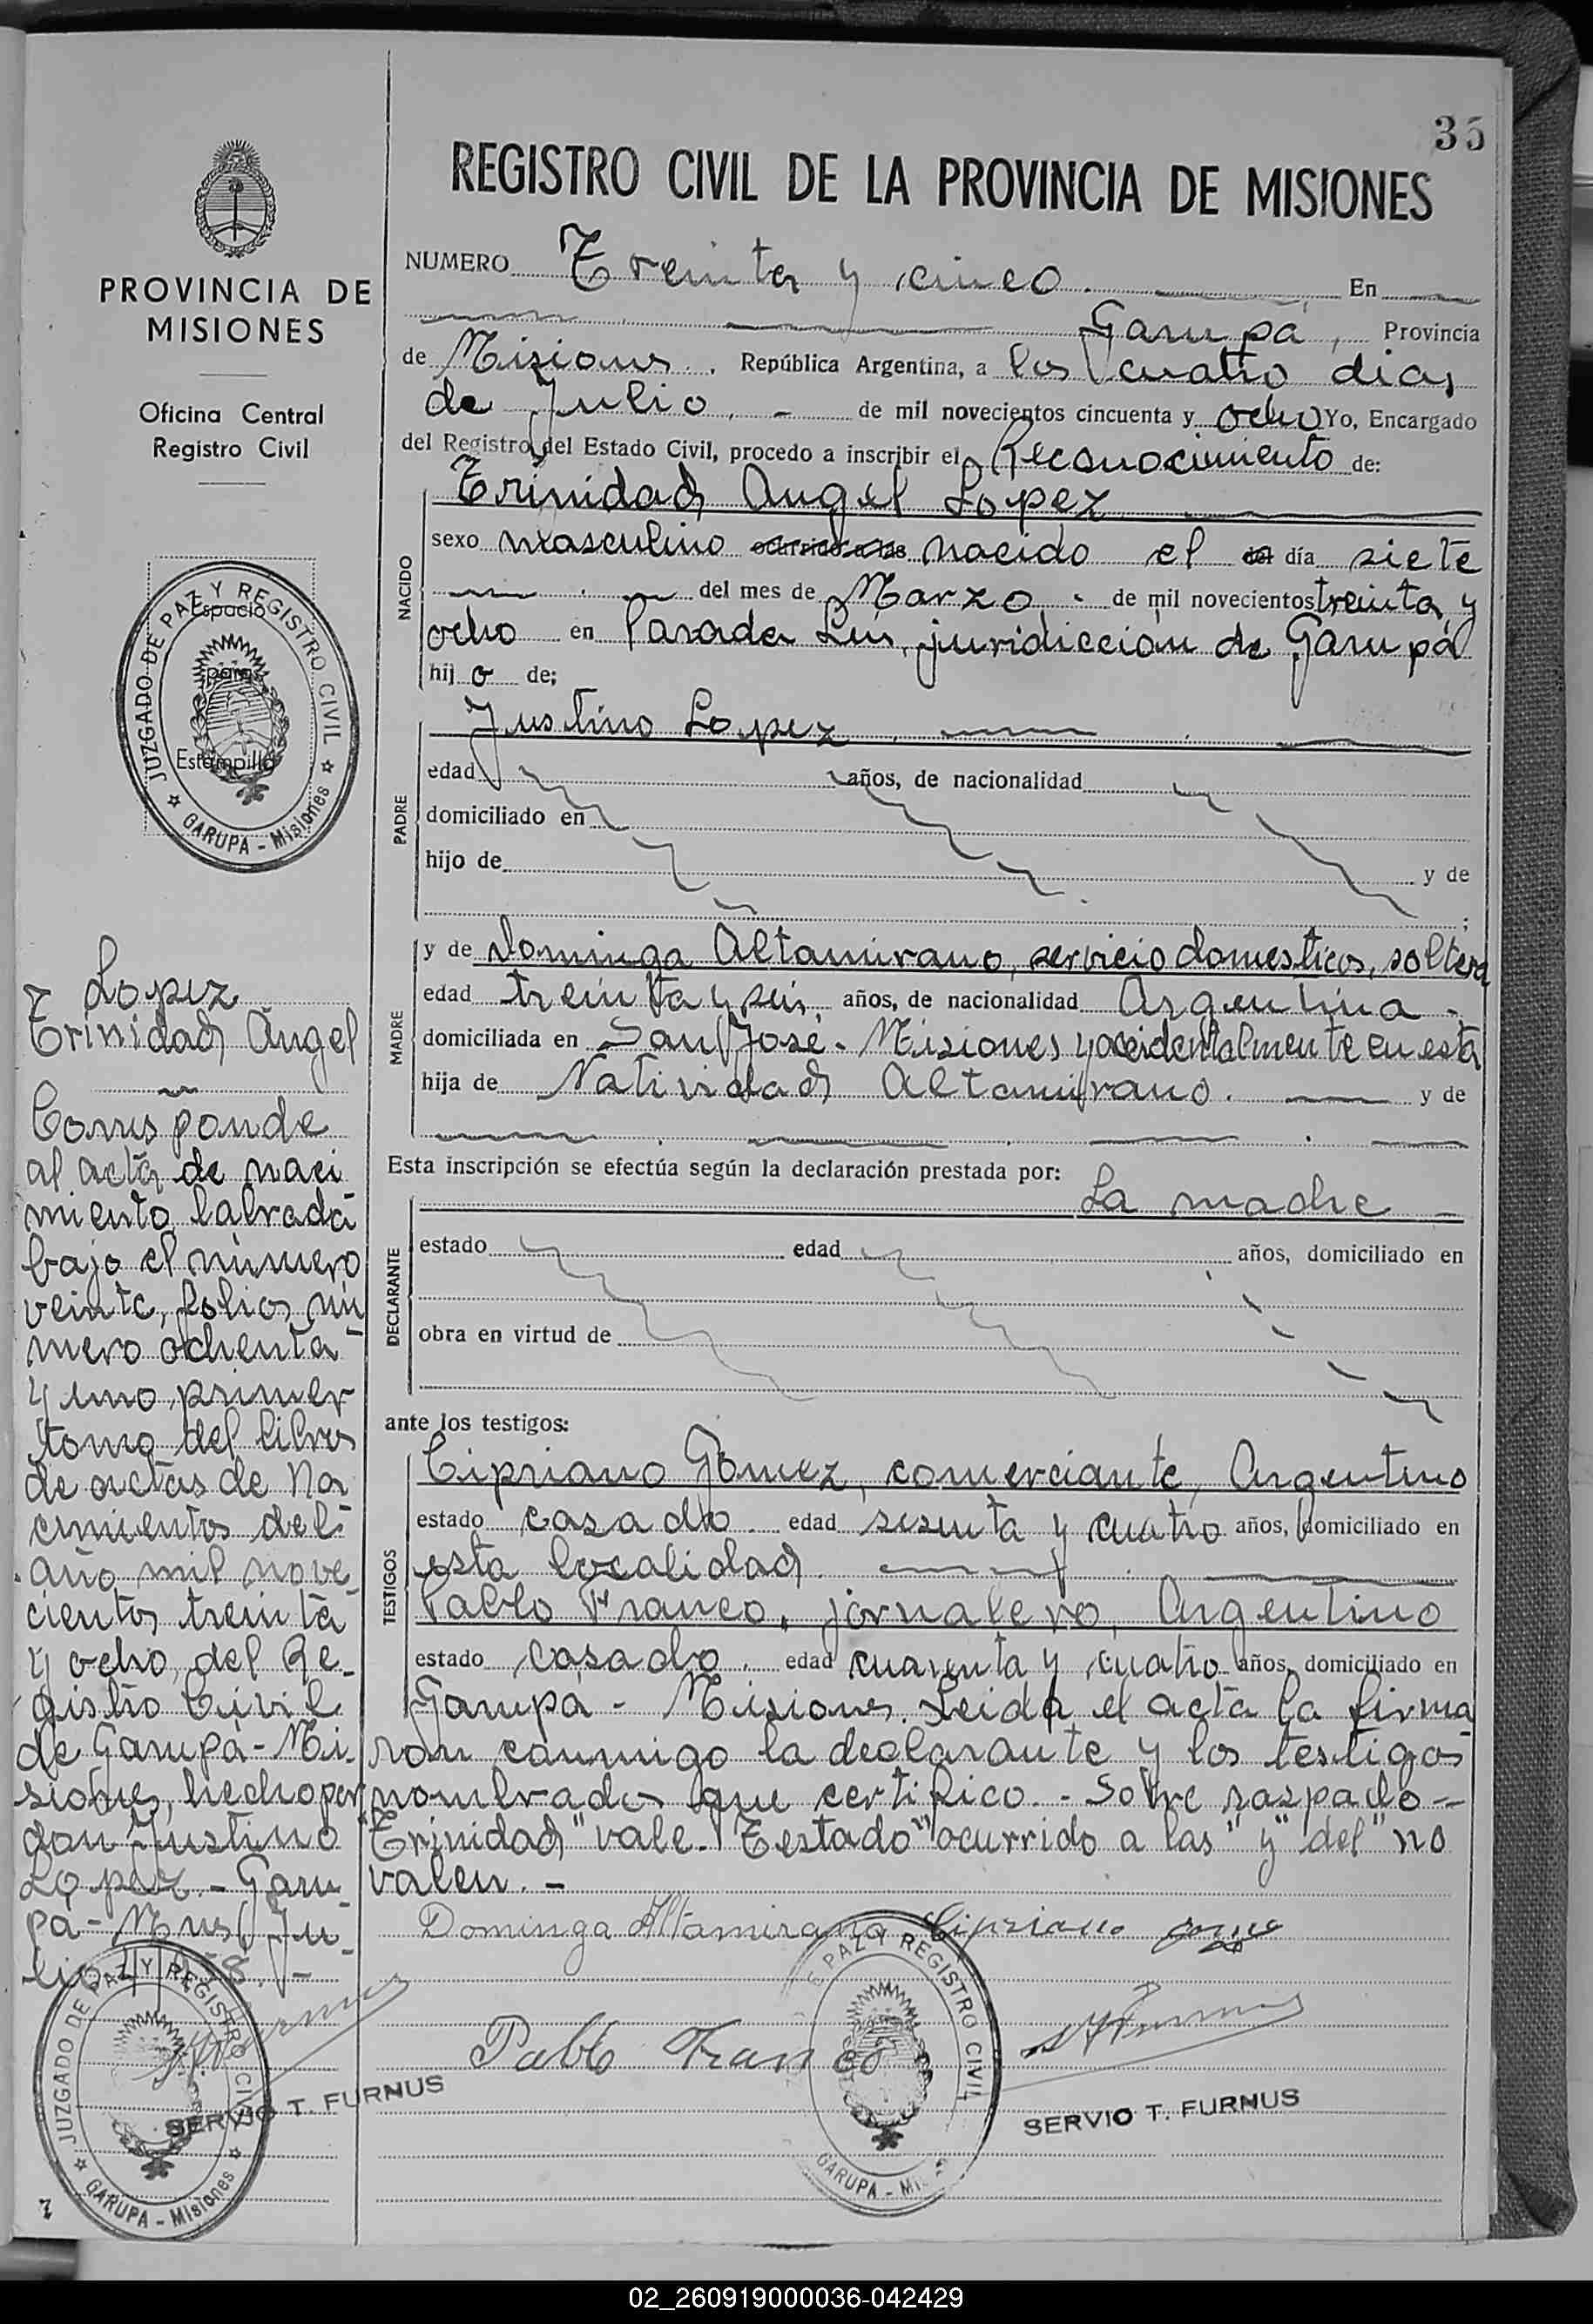 35
REGISTRO CIVIL DE LA PROVINCIA DE MISIONES
NUMERO Treinta y cinco. En
Garupá, Provincia
de Misiones. República Argentina, a los cuatro dias
de Julio. - de mil novecientos cincuenta y ocho Yo, Encargado
del Registro del Estado Civil, procedo a inscribir el Reconocimiento de:
Trinidad Angel Lopez
NACIDO
sexo masculino ocurrido a las nacido el del día siete
del mes de Marzo. - de mil novecientos treinta y
ocho en Parada Luis, juridicción de Garupá
hij o de;
PADRE
Justino Lopez
edad años, de nacionalidad
domiciliado en
hijo de y de
;
MADRE
y de Dominga Altamirano, servicio domesticos, soltera
edad treinta y seis, años, de nacionalidad Argentina -
domiciliada en San José - Misiones y accidentalmente en esta
hija de Natividad Altamirano. y de
Esta inscripción se efectúa según la declaración prestada por:
La madre -
DECLARANTE
estado edad años, domiciliado en
obra en virtud de
ante los testigos:
TESTIGOS
Cipriano Gómez, comerciante, Argentino
estado casado. edad sesenta y cuatro años, domiciliado en
esta localidad.
Pablo Franco, jornalero, Argentino
estado casado. edad cuarenta y cuatro años, domiciliado en
Garupá - Misiones. Leida el acta la firma
ron conmigo la declarante y los testigos
nombrados que certifico. - Sobre raspado -
"Trinidad" vale. Testado "ocurrido a las" y "del" no
valen. -
Dominga Altamirano Cipriano
Pablo Franco
SERVIO T. FURNUS
PAZ Y REGISTRO CIVIL
GARUPA - Mi
PROVINCIA DE
MISIONES
Oficina Central
Registro Civil
JUZGADO DE PAZ Y REGISTRO CIVIL
GARUPA - Misiones
Espacio
para
Estampilla
Lopez
Trinidad Angel
Corresponde
al acta de naci
miento labrada
bajo el número
veinte, folios nú
mero ochenta
y uno, primer
tomo del libros
de actas de Na
cimientos del
año mil nove
cientos treinta
y ocho, del Re-
gistro Civil
de Garupá - Mi-
siones, hecho por
don Justino
Lopez. - Garu
pá - Mnes, Ju-
lio
JUZGADO DE PAZ Y REGISTRO CIVIL
GARUPA - Misiones
SERVIO T. FURNUS
02_260919000036-042429